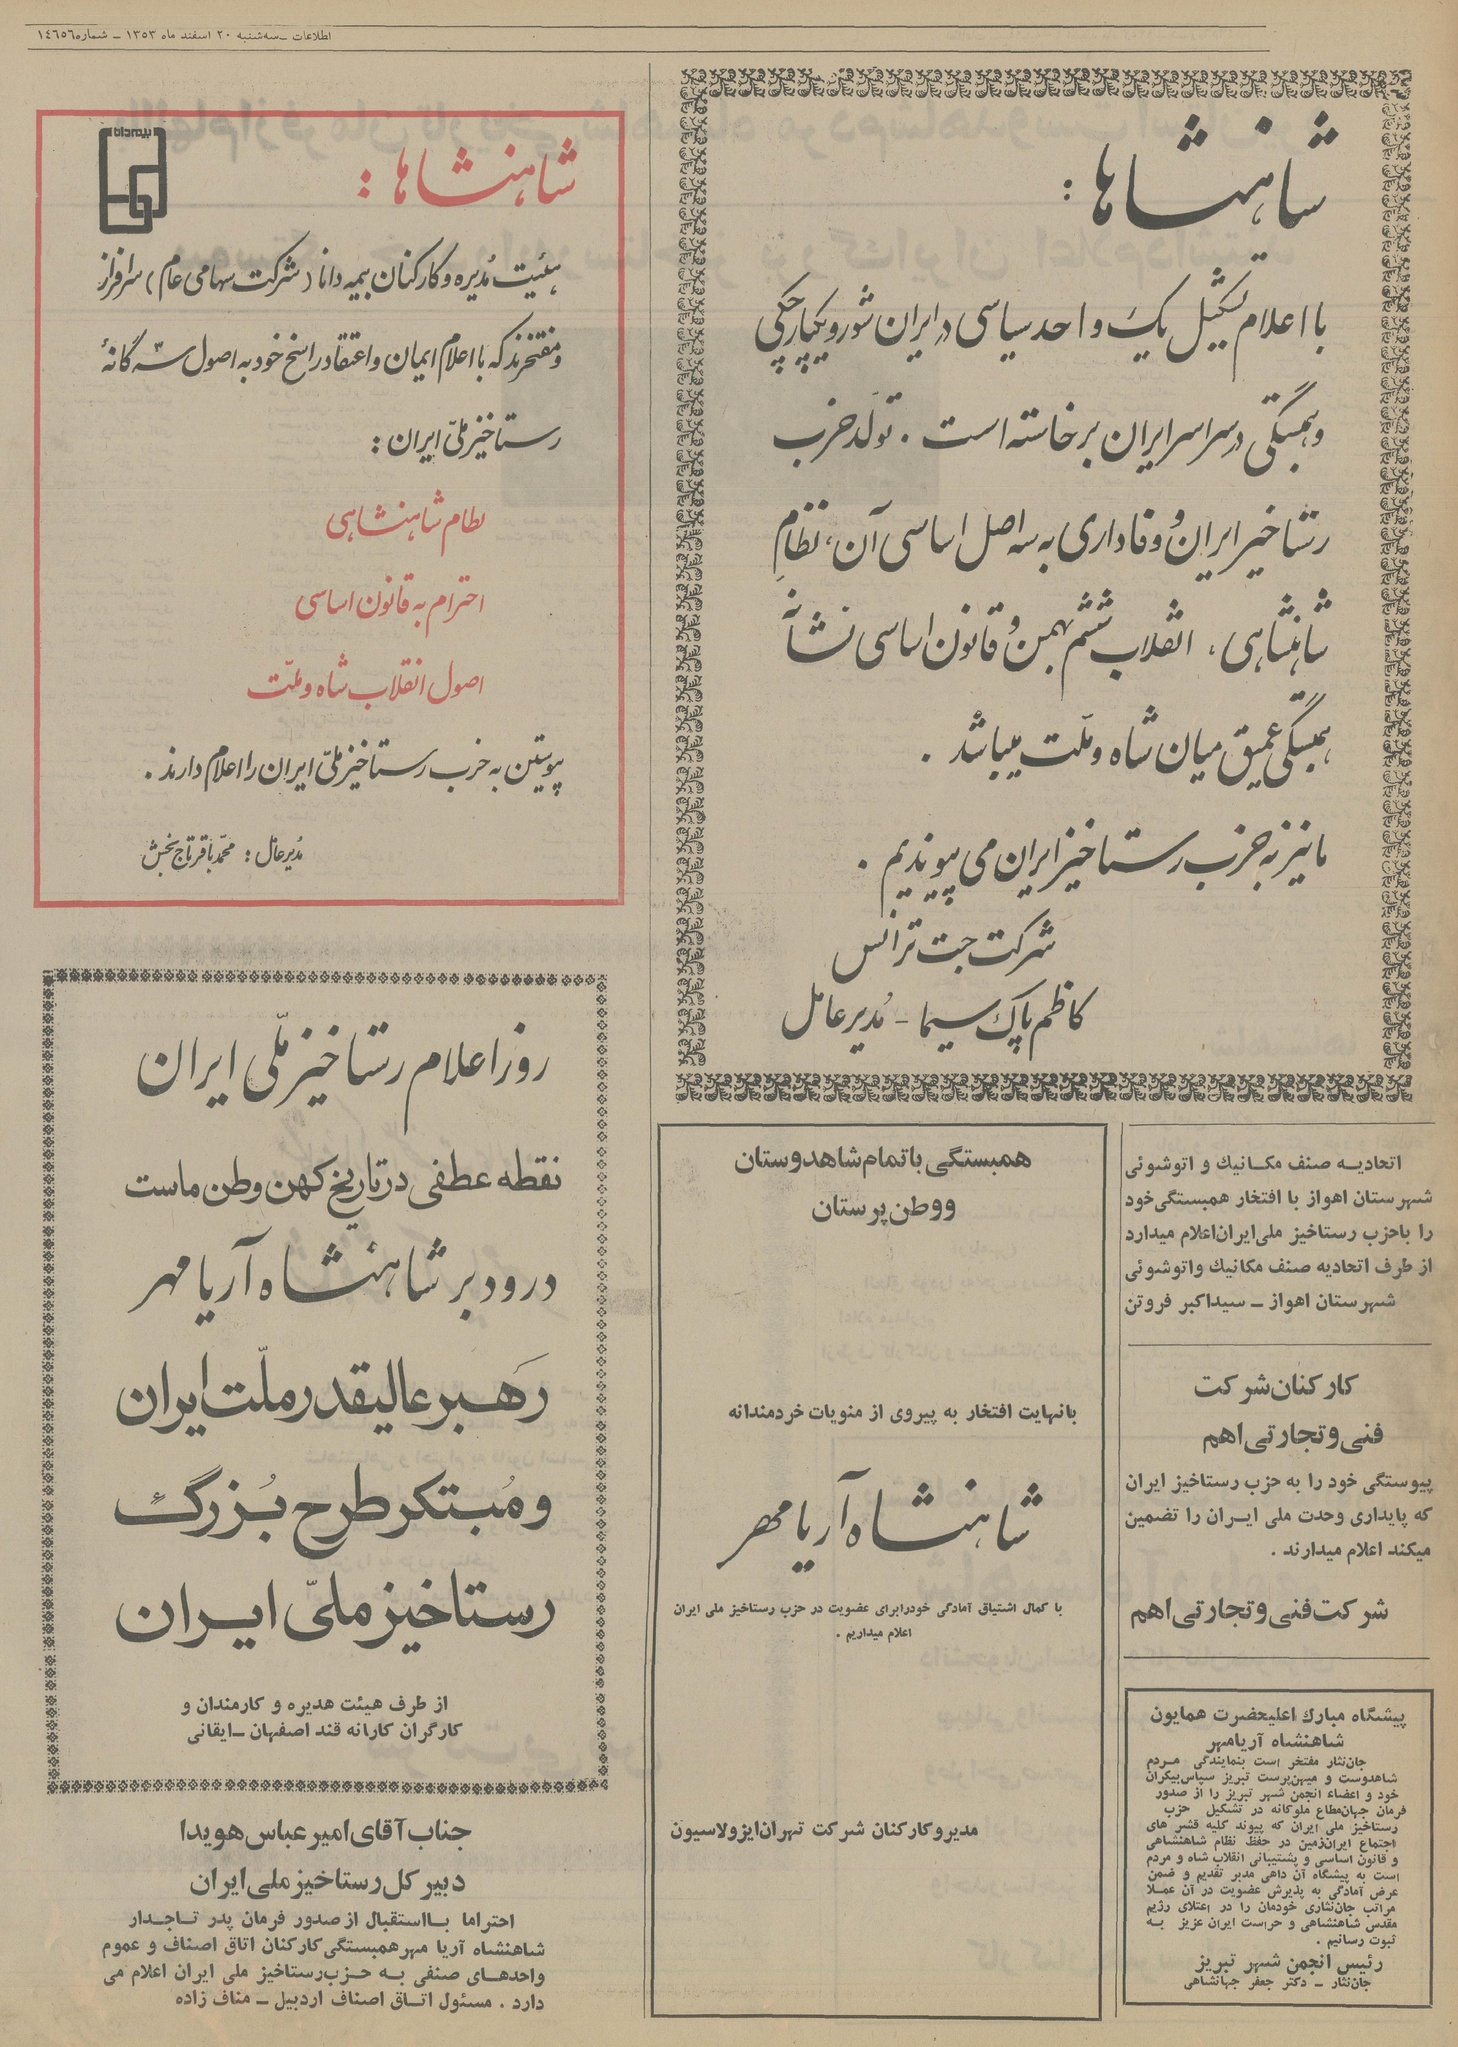 اطلاعات ــ سه‌شنبه ۲۰ اسفند ماه ۱۳۵۳ ــ شماره ۱۴۶۵۶
شاهنشاها :
با اعلام تشکیل یک واحد سیاسی در ایران شور و یکپارچگی
و همبستگی در سراسر ایران برخاسته است . تولد حزب
رستاخیز ایران و وفاداری به سه اصل اساسی آن ، نظام
شاهنشاهی ، انقلاب ششم بهمن و قانون اساسی نشانه
همبستگی عمیق میان شاه و ملّت میباشد .
ما نیز به حزب رستاخیز ایران می پیوندیم .
شرکت جت ترانس
کاظم پاک سیما - مُدیر عامل
بیمه دانا
شاهنشاها :
هیئت مُدیره و کارکنان بیمه دانا (شرکت سهامی عام) سرافراز
و مفتخرند که با اعلام ایمان و اعتقاد راسخ خود به اصول سه گانهٔ
رستاخیز ملّی ایران :
نظام شاهنشاهی
احترام به قانون اساسی
اصول انقلاب شاه و ملّت
پیوستن به حزب رستاخیز ملّی ایران را اعلام دارند .
مُدیرعامل : محمّد باقر تاج بخش
روز اعلام رستاخیز ملّی ایران
نقطه عطفی در تاریخ کهن وطن ماست
درود بر شاهنشاه آریا مهر
رهبر عالیقدر ملّت ایران
و مُبتکر طرح بُزرگ
رستاخیز ملّی ایران
از طرف هیئت هدیره و کارمندان و
کارگران کارانه قند اصفهان ــ ایقانی
جناب آقای امیر عباس هویدا
دبیر کل رستاخیز ملی ایران
احتراما با استقبال از صدور فرمان پدر تاجدار
شاهنشاه آریا مهر همبستگی کارکنان اتاق اصناف و عموم
واحدهای صنفی به حزب رستاخیز ملی ایران اعلام می
دارد . مسئول اتاق اصناف اردبیل ــ مناف زاده
همبستگی با تمام شاهدوستان
و وطن پرستان
بانهایت افتخار به پیروی از منویات خردمندانه
شاهنشاه آریا مهر
با کمال اشتیاق آمادگی خودرابرای عضویت در حزب رستاخیز ملی ایران
اعلام میداریم .
مدیر و کارکنان شرکت تهران ایزولاسیون
اتحادیه صنف مکانیك و اتوشوئی
شهرستان اهواز با افتخار همبستگی خود
را باحزب رستاخیز ملی ایران اعلام میدارد
از طرف اتحادیه صنف مکانیك و اتوشوئی
شهرستان اهواز ــ سیداکبر فروتن
کارکنان شرکت
فنی و تجارتی اهم
پیوستگی خود را به حزب رستاخیز ایران
که پایداری وحدت ملی ایران را تضمین
میکند اعلام میدارند .
شرکت فنی و تجارتی اهم
پیشگاه مبارك اعلیحضرت همایون
شاهنشاه آریامهر
جان‌نثار مفتخر است بنمایندگی مردم
شاهدوست و میهن‌پرست تبریز سپاس بیکران
خود و اعضاء انجمن شهر تبریز را از صدور
فرمان جهان‌مطاع ملوکانه در تشکیل حزب
رستاخیز ملی ایران که پیوند کلیه قشر های
اجتماع ایران‌زمین در حفظ نظام شاهنشاهی
و قانون اساسی و پشتیبانی انقلاب شاه و مردم
است به پیشگاه آن داهی مدبر تقدیم و ضمن
عرض آمادگی به پذیرش عضویت در آن عملا
مراتب جان‌نثاری خودمان را در اعتلای رژیم
مقدس شاهنشاهی و حراست ایران عزیز به
ثبوت رسانیم .
رئیس انجمن شهر تبریز
جان‌نثار ــ دکتر جعفر جهانشاهی